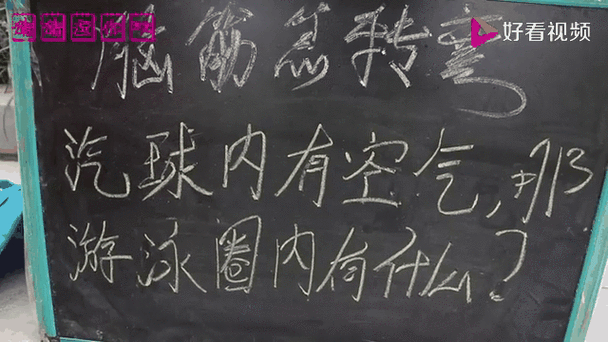 好看视频
脑筋急转弯
汽球内有空气,那
游泳圈内有什么?